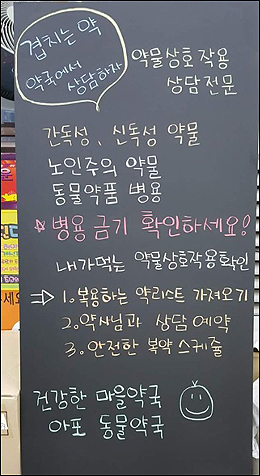 겹치는 약
약국에서
상담하자
약물상호작용
상담전문
간독성, 신독성 약물
노인주의 약물
동물약품 병용
☆ 병용금기 확인하세요!
내가먹는 약물상호작용확인
⇒ 1. 복용하는 약리스트 가져오기
2. 약사님과 상담 예약
3. 안전한 복약 스케줄
건강한 마을약국
아포 동물약국